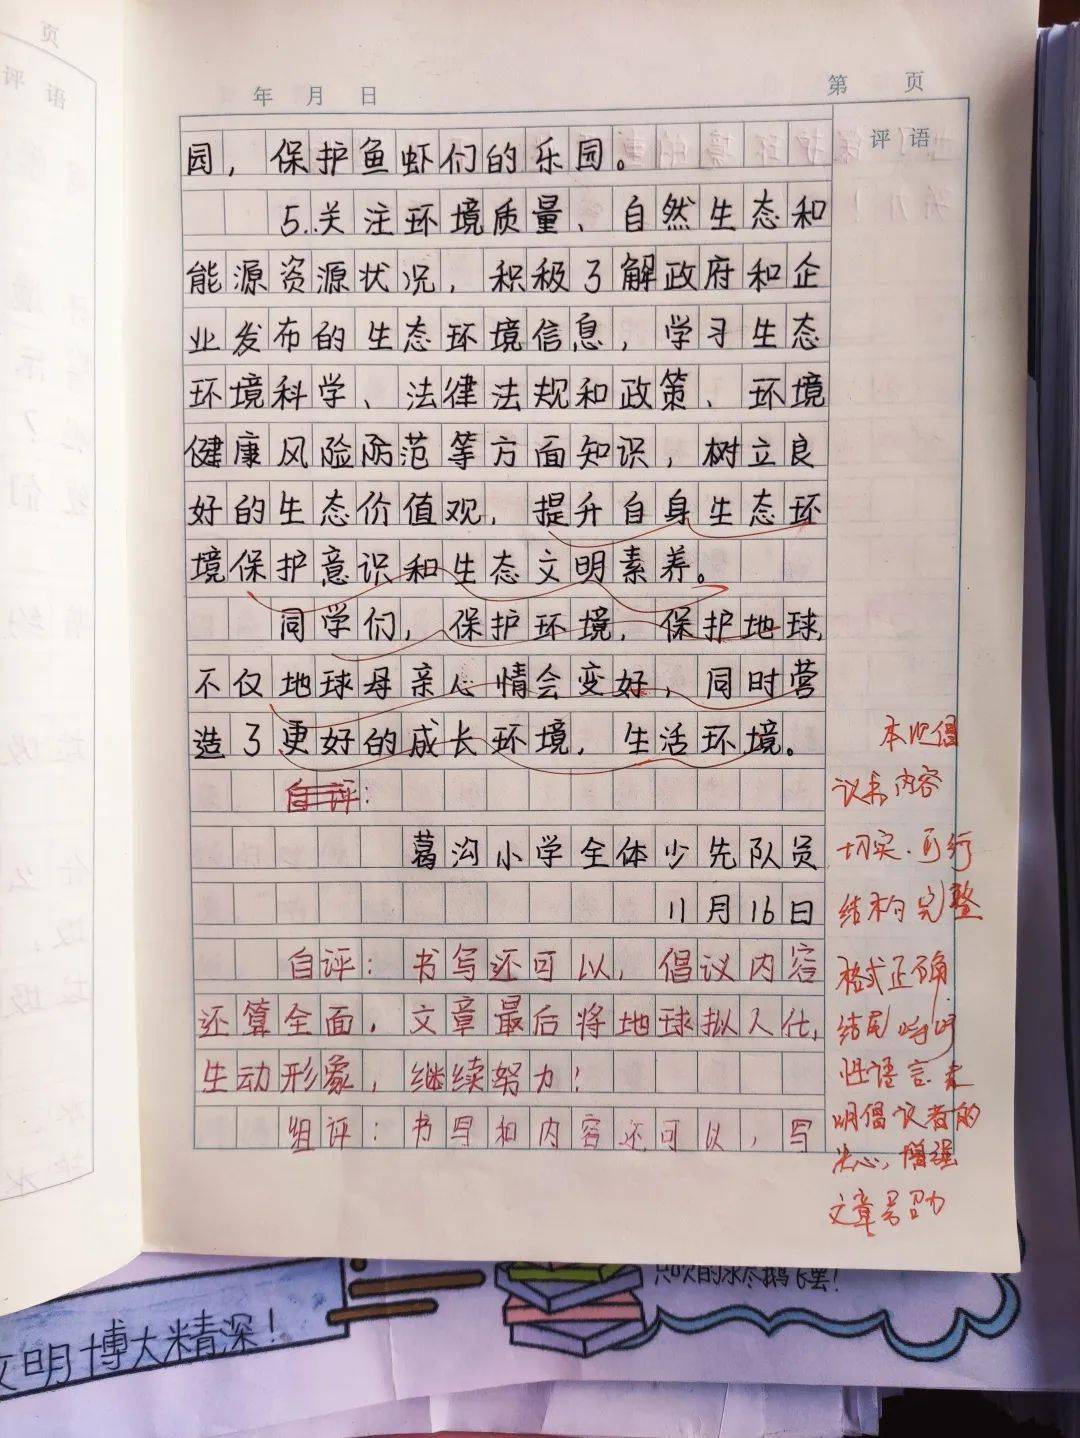 年 月 日
第 页
评语
园，保护鱼虾们的乐园。
5.关注环境质量、自然生态和
能源资源状况，积极了解政府和企
业发布的生态环境信息，学习生态
环境科学、法律法规和政策、环境
健康风险防范等方面知识，树立良
好的生态价值观，提升自身生态环
境保护意识和生态文明素养。
同学们，保护环境，保护地球，
不仅地球母亲心情会变好，同时营
造了更好的成长环境，生活环境。
自评：
葛沟小学全体少先队员
11月16日
自评：书写还可以，倡议内容
还算全面，文章最后将地球拟人化，
生动形象，继续努力！
组评：书写和内容还可以，写
本次倡
议书内容
切实、可行
结构完整
格式正确
结尾呼吁
性语言表
明倡议者的
决心，增强
文章号召力
文明博大精深！